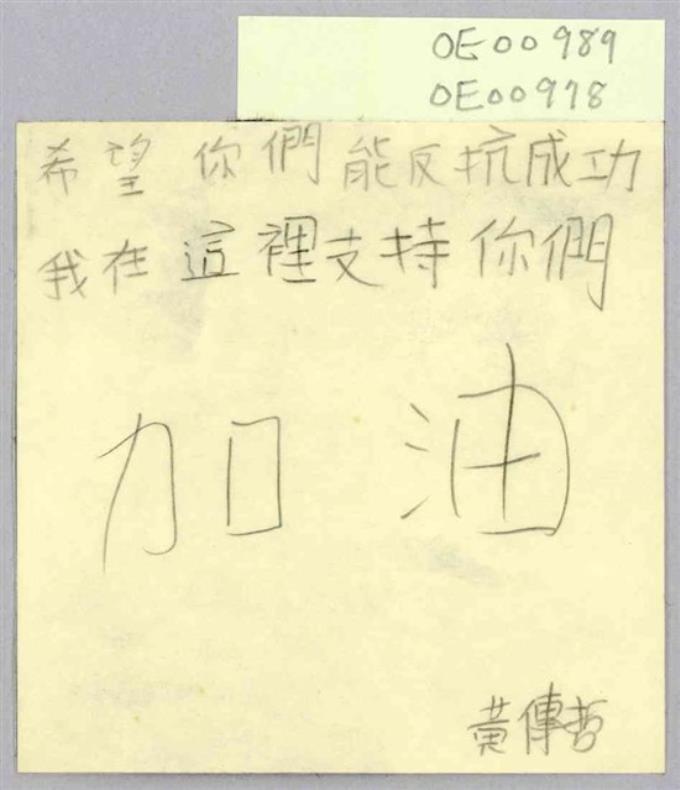 OE00989
OE00978
希望你們能反抗成功
我在這裡支持你們
加油
黃傳哲